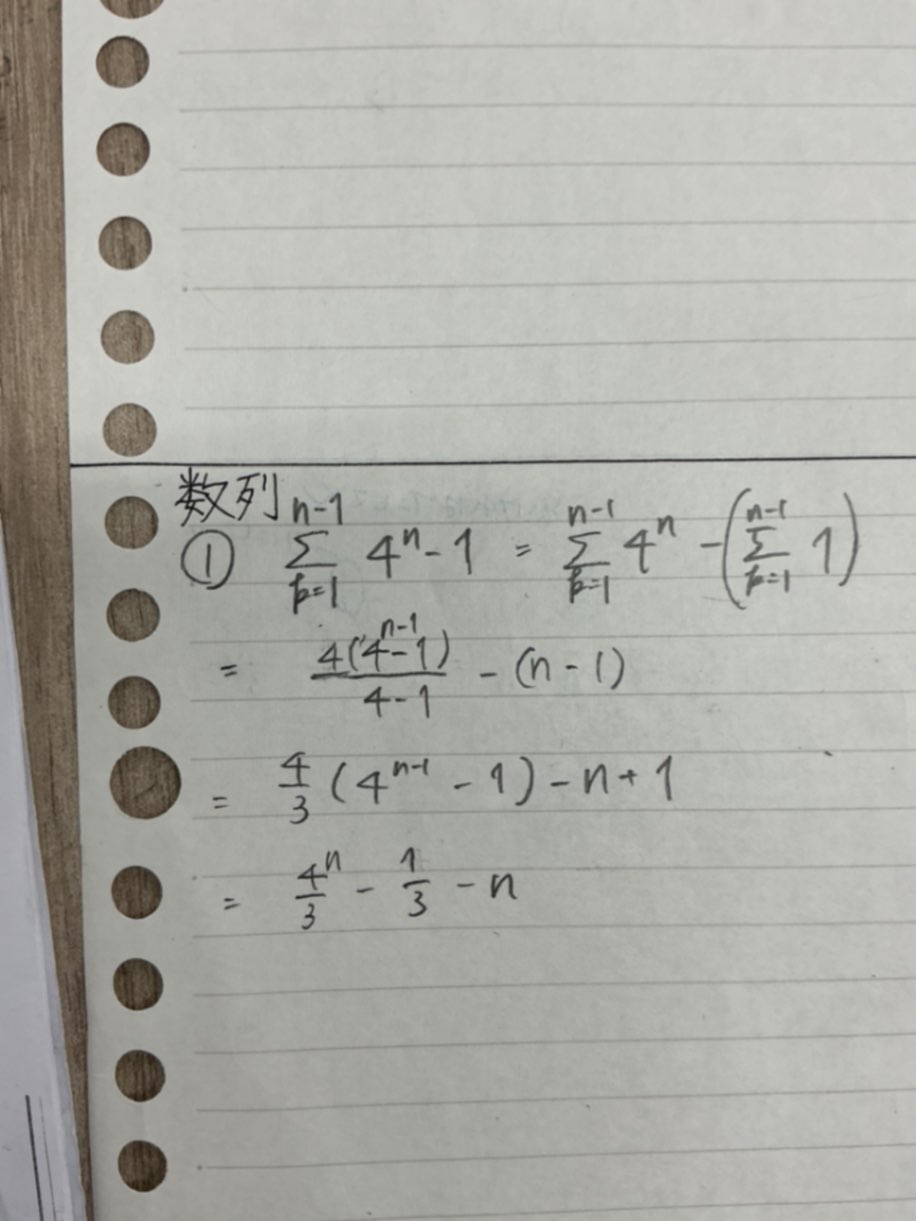 数列
① \sum_{k=1}^{n-1} 4^n - 1 = \sum_{k=1}^{n-1} 4^n - (\sum_{k=1}^{n-1} 1)
= \frac{4(4^{n-1}-1)}{4-1} - (n-1)
= \frac{4}{3}(4^{n-1} - 1) - n + 1
= \frac{4^n}{3} - \frac{1}{3} - n